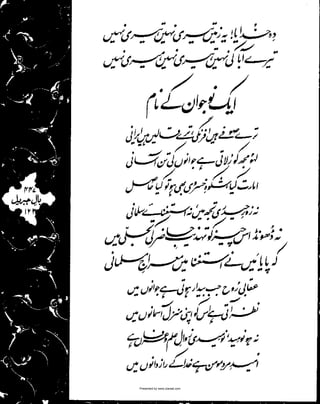 دہ خدایا! یہ زمیں تیری نہیں، تیری نہیں
تیرے آبا کی نہیں، تیری نہیں، میری نہیں
ایک نوجوان کے نام
ترے صوفے ہیں افرنگی، ترے قالیں ہیں ایرانی
لہو مجھ کو رلاتی ہے جوانوں کی تن آسانی
امارت کیا، شکوہِ خسروی بھی ہو تو کیا حاصل
نہ زورِ حیدری تجھ میں، نہ استغنائے سلمانی
نہ ڈھونڈ اس چیز کو تہذیبِ حاضر کی تجلی میں
کہ پایا میں نے استغنا میں معراجِ مسلمانی
عقابی روح جب بیدار ہوتی ہے جوانوں میں
نظر آتی ہے اس کو اپنی منزل آسمانوں میں
نہ ہو نومید، نومیدی زوالِ علم و عرفاں ہے
امیدِ مردِ مومن ہے خدا کے راز دانوں میں
بالِ جبریل
Presented by www.ziaraat.com